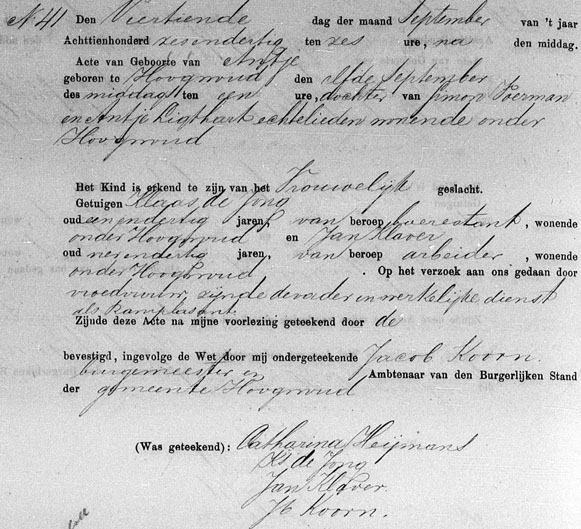 N 41 Den Viertiende dag der maand September van 't jaar
Achttienhonderd zesendertig ten zes ure, na den middag.
Acte van Geboorte van Antje
geboren te Hoogwoud den elfde September
des middag ten een ure, dochter van Simon Poerman
en Antje Ligthart echtelieden wonende onder
Hoogwoud
Het Kind is erkend te zijn van het Vrouwelijk geslacht.
Getuigen Klaas de Jong
oud een endertig jaren, van beroep , wonende
onder Hoogwoud en Jan Klaver
oud jaren, van beroep arbeider, wonende
onder Hoogwoud . Op het verzoek aan ons gedaan door
vroedvrouw, zijnde de vader in werkelijke dienst
als Ramplasant
Zijnde deze Acte na mijne voorlezing geteekend door de
bevestigd, ingevolge de Wet door mij ondergeteekende Jacob Koorn.
burgemeester en Ambtenaar van den Burgerlijken Stand
der gemeente Hoogwoud
(Was geteekend): Catharina Heijmans
Ks de Jong
Jan Klaver.
Jb Koorn.